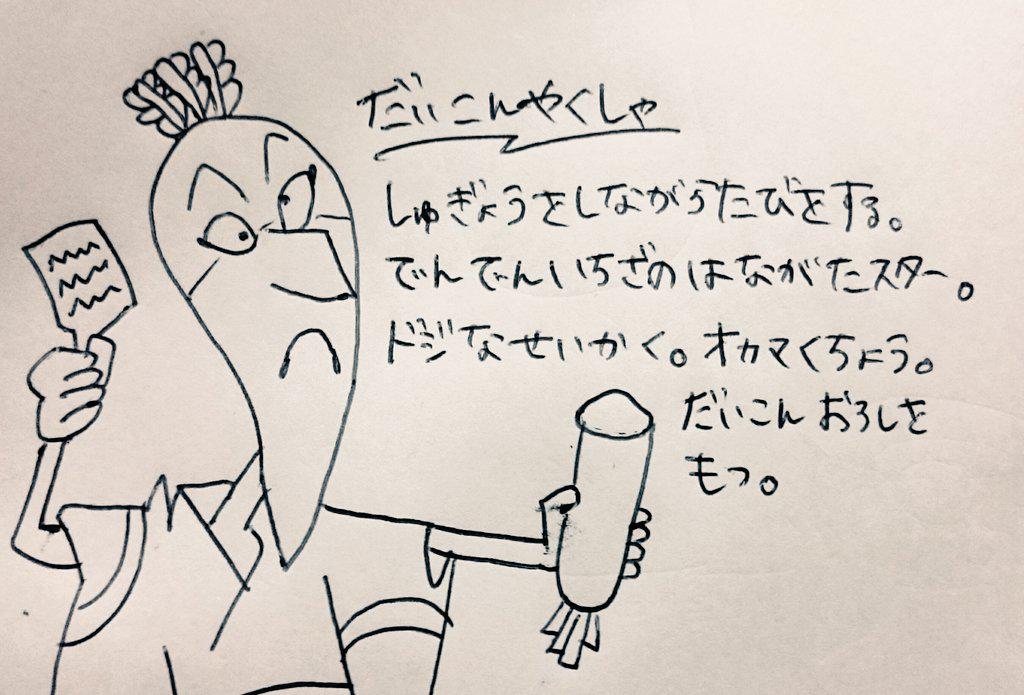 だいこんやくしゃ
しゅぎょうをしながらたびをする。
でんでんいちざのはながたスター。
ドジなせいかく。オカマくちょう。
だいこんおろしを
もつ。